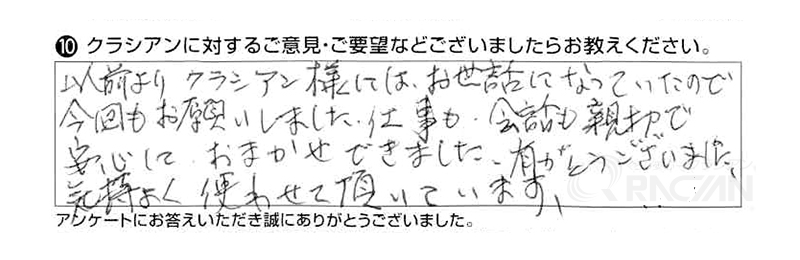 ⑩ クラシアンに対するご意見・ご要望などございましたらお教えください。
以前より クラシアン様には、お世話になっていたので
今回もお願いしました、仕事も、会話も親切で
安心して おまかせできました、有がとうございました、
気持よく使わせて頂いています、
QRACIAN
アンケートにお答えいただき誠にありがとうございました。